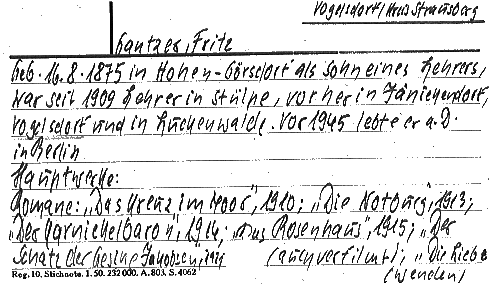 Vogelsdorf/Kreis Strausberg
Lantzer, Fritz
Geb. 16.8.1875 in Hohen-Görsdorf als Sohn eines Lehrers,
war seit 1909 Lehrer in Stülpe, vorher in Jänickendorf,
Vogelsdorf und in Luckenwalde. Vor 1945 lebte er a.D.
in Berlin
Hauptwerke:
Romane: „Das Kreuz im Moor", 1910; „Die Notburg", 1913;
„Der Karnickelbaron", 1914; „Das Rosenhaus", 1915; „Der
Schatz der Gesine Jakobsen", (auch verfilmt); „Die Liebe
Reg. 10. Stichnote. 1. 50. 232 000. A. 803. S. 4062
(wenden)